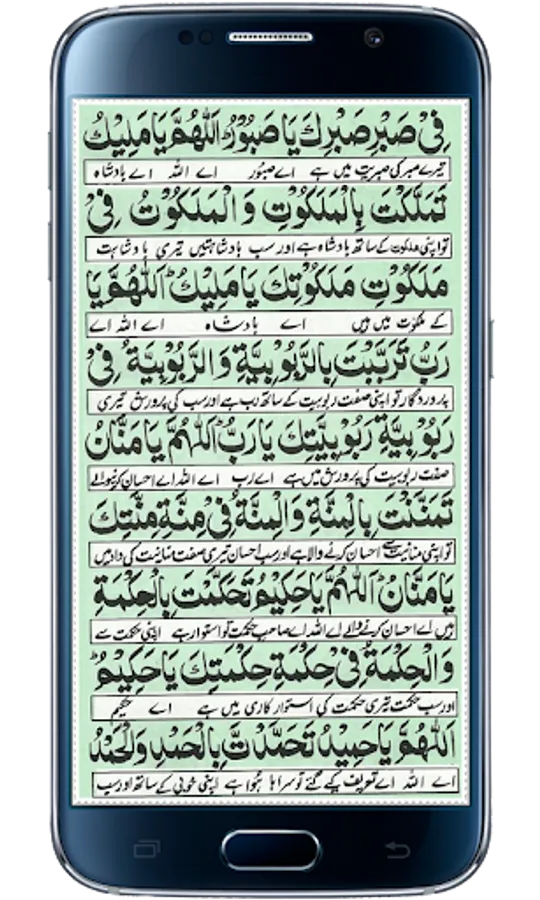 فِیْ صَبْرِ صَبْرِكَ یَا صَبُوْرُ اَللّٰهُمَّ یَا مَلِیْكُ
تیرے صبر کی صبرت میں ہے اے صبُور اے اللہ اے بادشاہ
تَمَلَّكْتَ بِالْمَلَكُوْتِ وَ الْمَلَكُوْتُ فِیْ
تو اپنی ملکوت کے ساتھ بادشاہ ہے اور سب بادشاہتیں تیری بادشاہت
مَلَكُوْتِ مَلَكُوْتِكَ یَا مَلِیْكُ اَللّٰهُمَّ یَا
کے ملکوت میں ہیں اے بادشاہ اے اللہ اے
رَبُّ تَرَبَّبْتَ بِالرَّبُوْبِیَّةِ وَ الرَّبُوْبِیَّةُ فِیْ
پروردگار تو اپنی صفت ربوبیت کے ساتھ رب ہے اور سب کی پرورش تیری
رَبُوْبِیَّةِ رَبُوْبِیَّتِكَ یَا رَبُّ اَللّٰهُمَّ یَا مَنَّانُ
صفت ربوبیت کی پرورش میں ہے اے رب اے اللہ اے احسان کرنیوالے
تَمَنَّنْتَ بِالْمِنَّةِ وَ الْمِنَّةُ فِیْ مِنَّةِ مِنَّتِكَ
تو اپنی منانیت سے احسان کرنے والا ہے اور سب احسان تیری صفت منانیت کی داد میں
یَا مَنَّانُ اَللّٰهُمَّ یَا حَكِیْمُ تَحَكَّمْتَ بِالْحِكْمَةِ
ہیں اے احسان کرنے والے اے اللہ اے صاحب حکمت تو استوار ہے اپنی حکمت سے
وَ الْحِكْمَةُ فِیْ حِكْمَةِ حِكْمَتِكَ یَا حَكِیْمُ
اور سب حکمت تیری حکمت کی استوار کاری میں ہے اے حکیم
اَللّٰهُمَّ یَا حَمِیْدُ تَحَمَّدْتَّ بِالْحَمْدِ وَ الْحَمْدُ
اے اللہ اے تعریف کیے گئے تو سراہا ہُوا ہے اپنی خوبی کے ساتھ اور سب